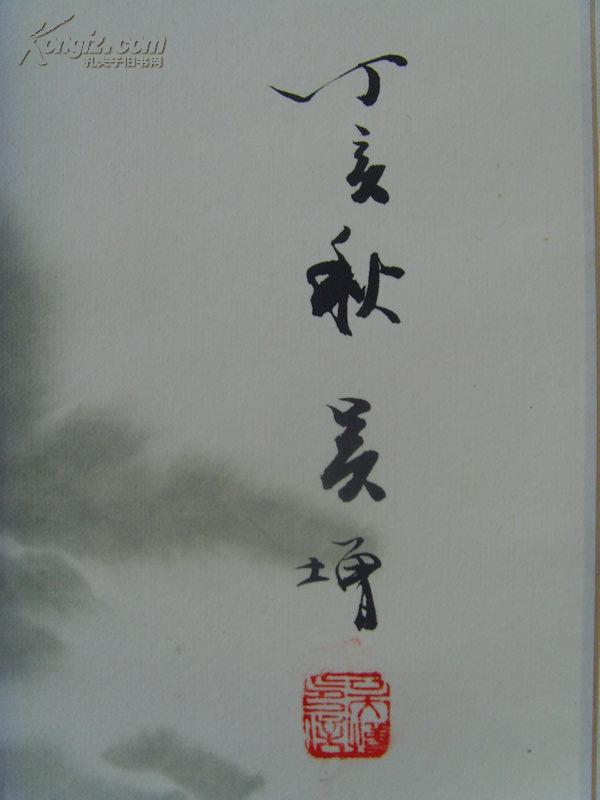 Kongfz.com
孔夫子旧书网
丁亥秋
吴增